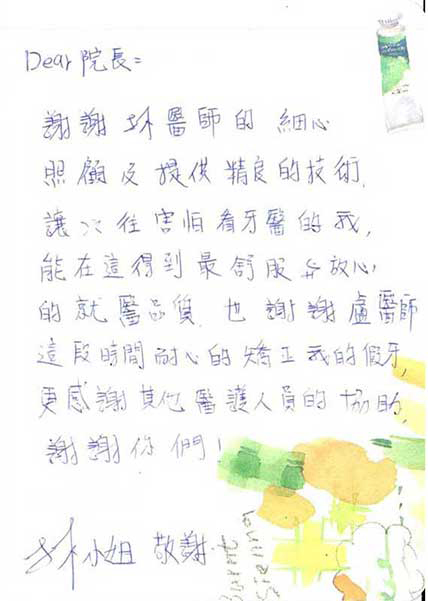 Dear 院長=
謝謝 醫師的 細心
照顧及提供精良的技術,
讓以往害怕看牙醫的我,
能在這得到最舒服&放心
的就醫品質. 也謝謝盧醫師
這段時間耐心的矯正我的假牙,
更感謝其他醫護人員的協助,
謝謝你們!
小姐 敬謝
Burnt
Sienna